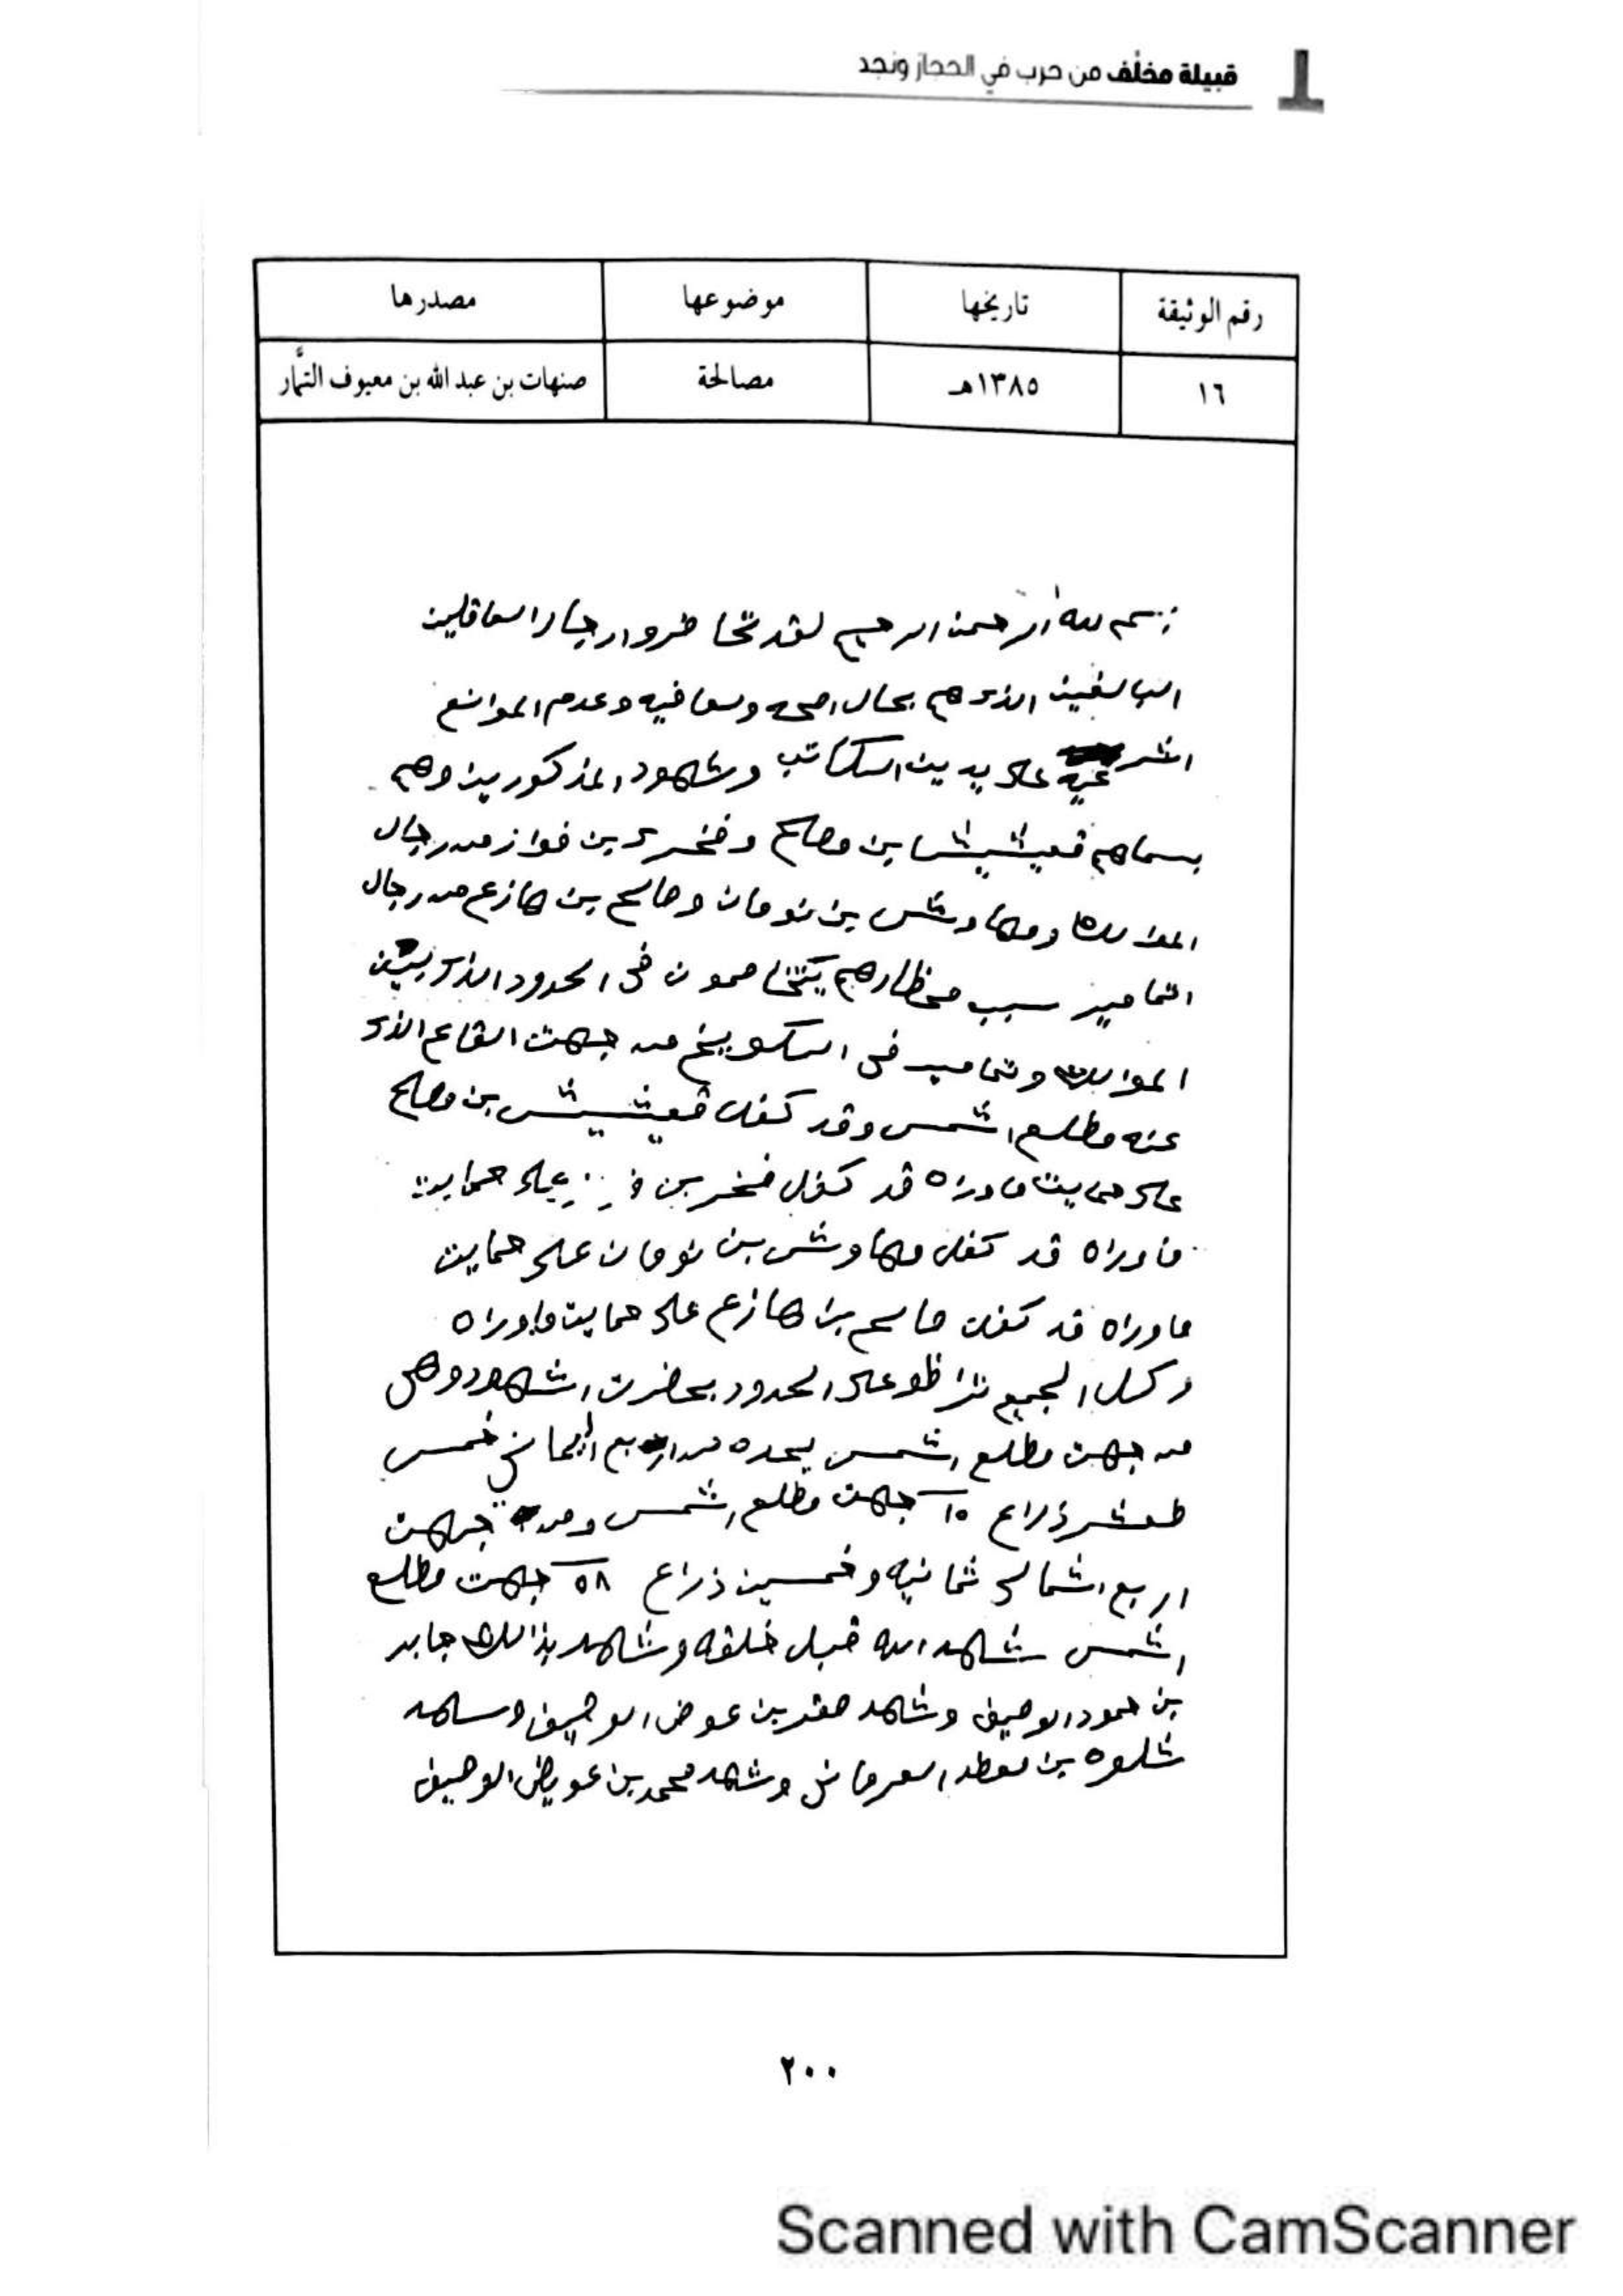 قبيلة مخلف من حرب في الحجاز ونجد
رقم الوثيقة تاريخها موضوعها مصدرها
١٦ ١٣٨٥هـ مصالحة صنهات بن عبد الله بن معيوف التمَّار
بسم الله الرحمن الرحيم لقد تحاظروا رجال العاقلين
البالغين الذي هم بحال اصحه ولعافيه وعدم الموانع
اشرعيه على يدين الكاتب وشهود المذكورين وهم
بسماهم قعيشيش ابن مصلح وفخري بن فواز من رجال
الموالده ومهاوش بن نومان وصالح بن هازع من رجال
اتمامير سبب محظارهم يتخاصمون في الحدود الذي بين
الموالده وتمامير في السكويخ من جهت القاع الذي
عنه مطلع اشمس وقد كفل قعيشيش بن مصلح
على حمايت ماوراه قد كفل فخر بن على حمايت
ماوراه قد كفل مهاوش بن نومان على حمايت
ماوراه قد كفل صالح بن هازع على حمايت ماوراه
وكل الجميع تراظو على الحدود بحضرت اشهود وهي
من جهت مطلع اشمس يحده من اربع اليماني خمس
طعشر ذراع ١٥ جهت مطلع اشمس ومن جهت
اربع اشمالي ثمانيه وخمسين ذراع ٥٨ جهت مطلع
اشمس شاهد الله قبل خلقه وشاهد بذالك جابر
بن حمود الوصيفي وشاهد صقر بن عوض الوصيفي وساهد
شلوه بن لعطر العرماني وشهد محمد بن عويض الوصيفي
٢٠٠
Scanned with CamScanner